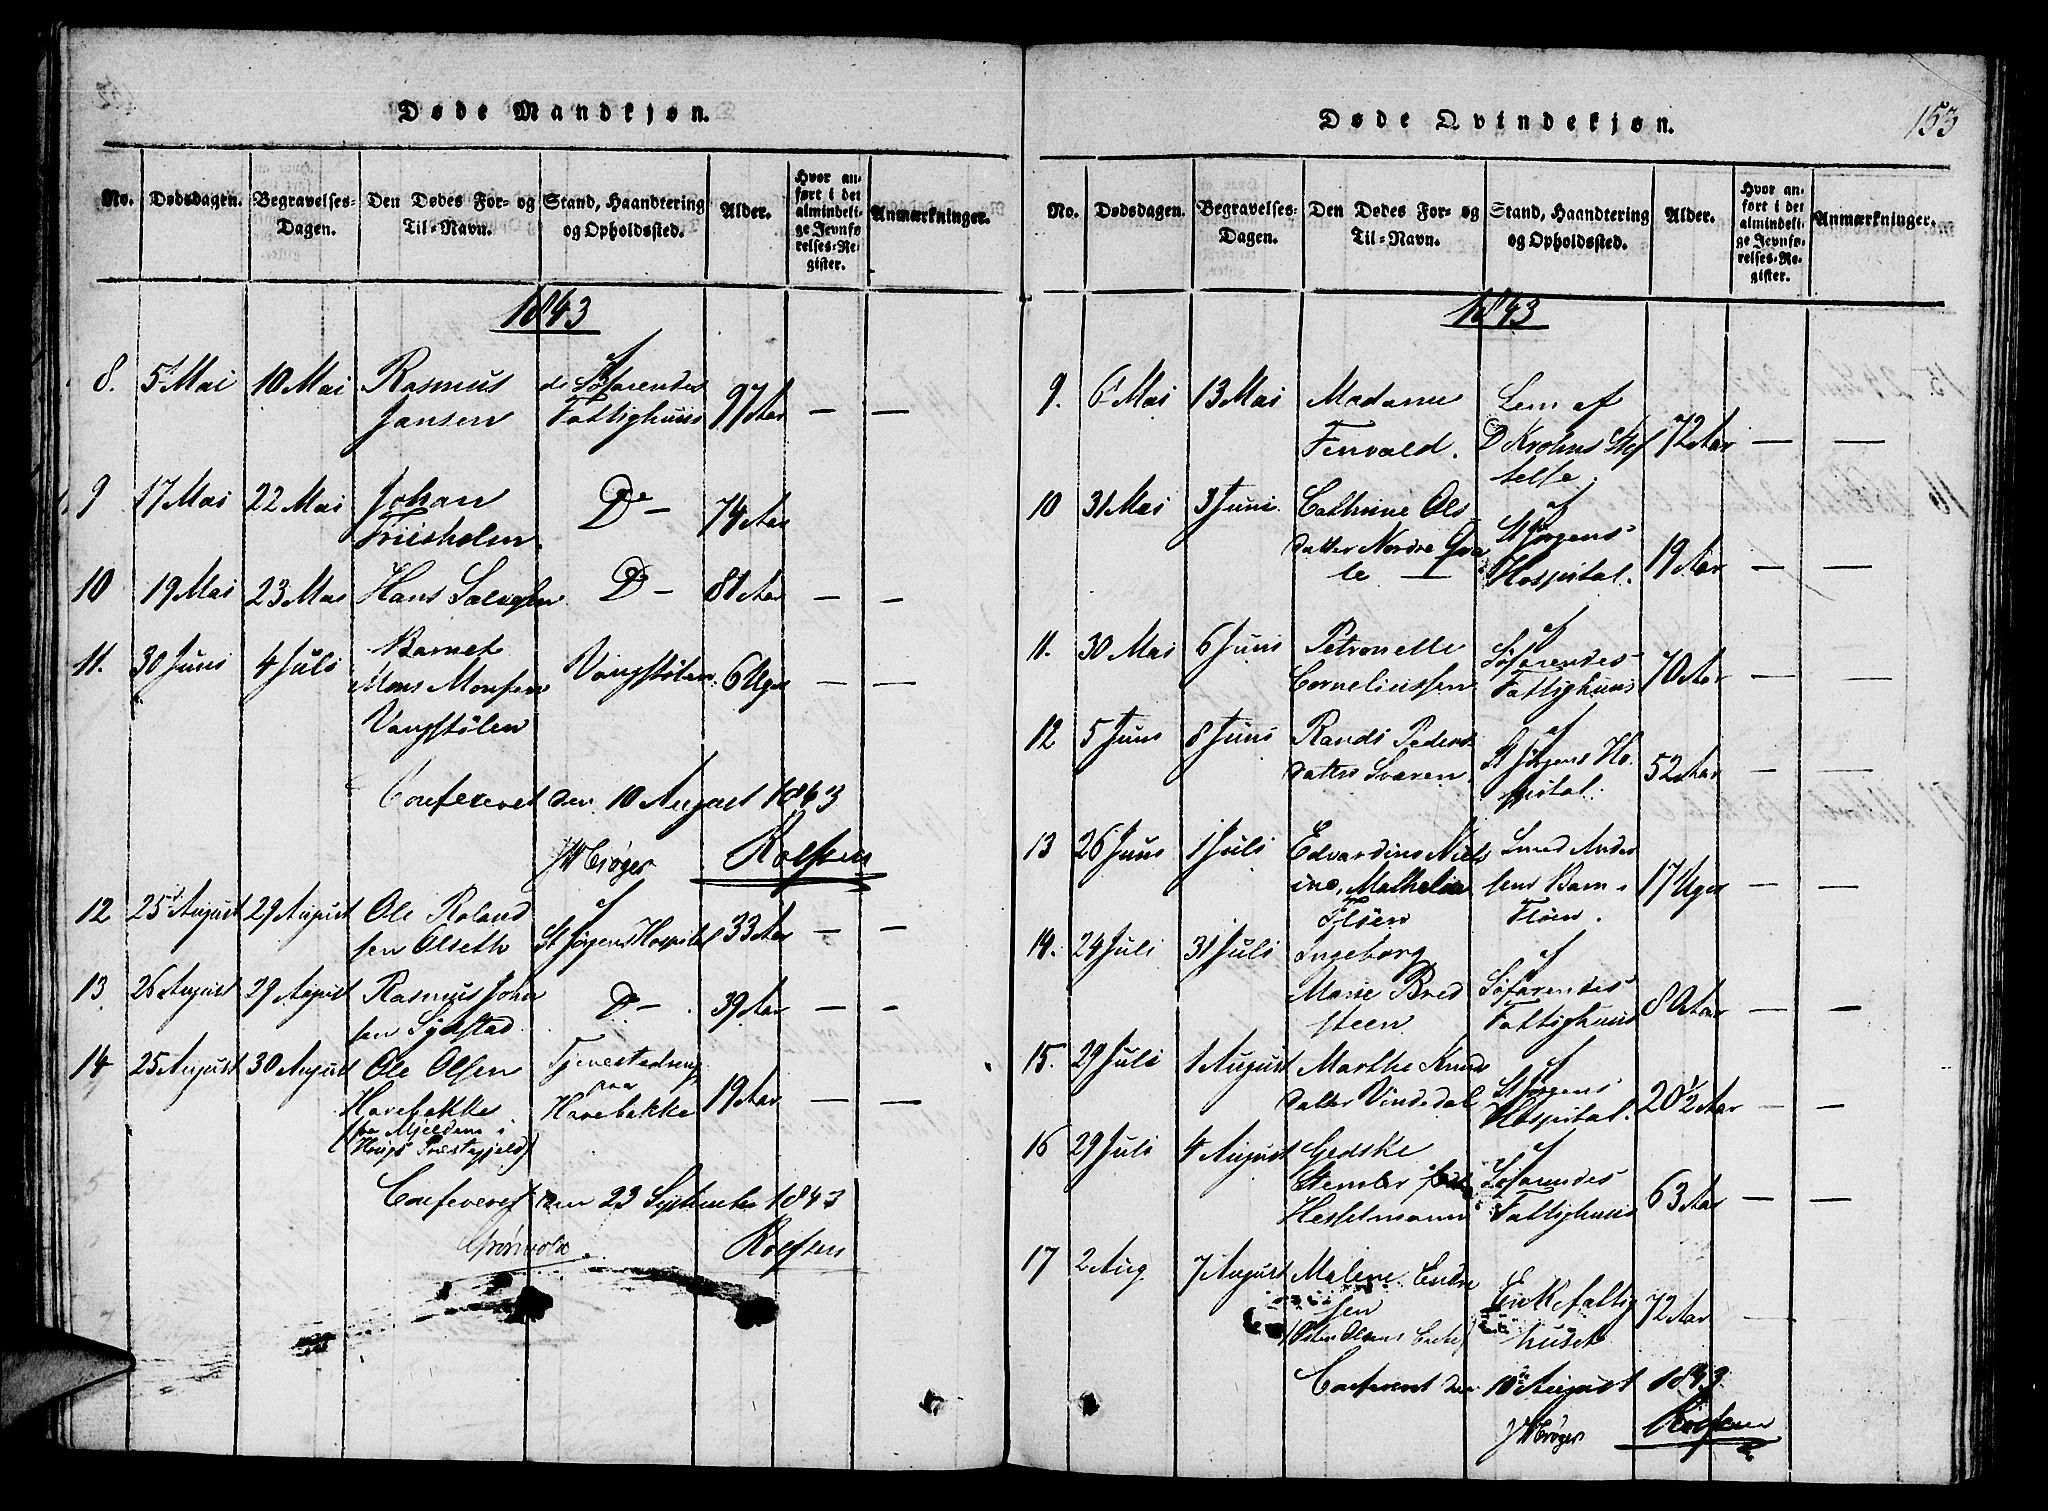 Døde Mandkjøn.
No. Dødsdagen. Begravelses-Dagen. Den Dødes For- og Til-Navn. Stand, Haandtering og Opholdssted. Alder. Hvor anført i det almindelige Jevnførelses-Register. Anmærkninger.
1843
8. 5 Mai 10 Mai Rasmus Jansen af de Søfarendes Fattighuus 97 Aar — —
9 17 Mai 22 Mai Johan Friisholm Do — 74 Aar
10 19 Mai 23 Mai Hans Do — 81 Aar — —
11. 30 Juni 4 Juli Barnet Mons Monsen Vangstølen Vangstølen. 6 Uger — —
Confereret den 10 August 1843
Krøger Rolfsen
12 25 August 29 August Ole Roland sen Olseth af St Jørgens Hospital 33 Aar — —
13 26 August 29 August Rasmus Johnsen Do — 39 Aar — —
14 25 August 30 August Ole Olsen Havebakke (fra Mjeldem i Hougs Præstegjeld) Tjenestedreng paa Havebakke 19 Aar — —
Confereret den 23 September 1843
Grønvold Rolfsen
Døde Qvindekjøn.
153
No. Dødsdagen. Begravelses-Dagen. Den Dødes For- og Til-Navn. Stand, Haandtering og Opholdssted. Alder. Hvor anført i det almindelige Jevnførelses-Register. Anmærkninger.
1843
9. 6 Mai 13 Mai Madame Fenvald. Lem af D Krohns Stiftelse. 72 Aar — —
10 31 Mai 3 Juni Cathrine Olsdatter Nordre Qvale — af St Jørgens Hospital. 19 Aar — —
11. 30 Mai 6 Juni Petronelle Corneliussen af Søfarendes Fattighuus 70 Aar — —
12 5 Juni 8 Juni Randi Pedersdatter Svaren. af St Jørgens Hospital. 52 Aar — —
13 26 Juni 1 Juli Edvardine Nielsine, Mathelia Fløen Amund Andersens Barn Fløen. 17 Uger — —
14. 24 Juli 31 Juli Ingeborg Marie Bredsteen af Søfarendes Fattighuus 80 Aar — —
15. 29 Juli 1 August Marthe Knudsdatter Vindedal af St Jørgens Hospital. 20 1/2 Aar — —
16 29 Juli 4 August Gedske Stemler född Hesselmann af Søfarendes Fattighuus 63 Aar — —
17 2 Aug 7 August Malene Endresen Enke fattighuset 72 Aar —
Confereret den 10de August 1843
Krøger Rolfsen